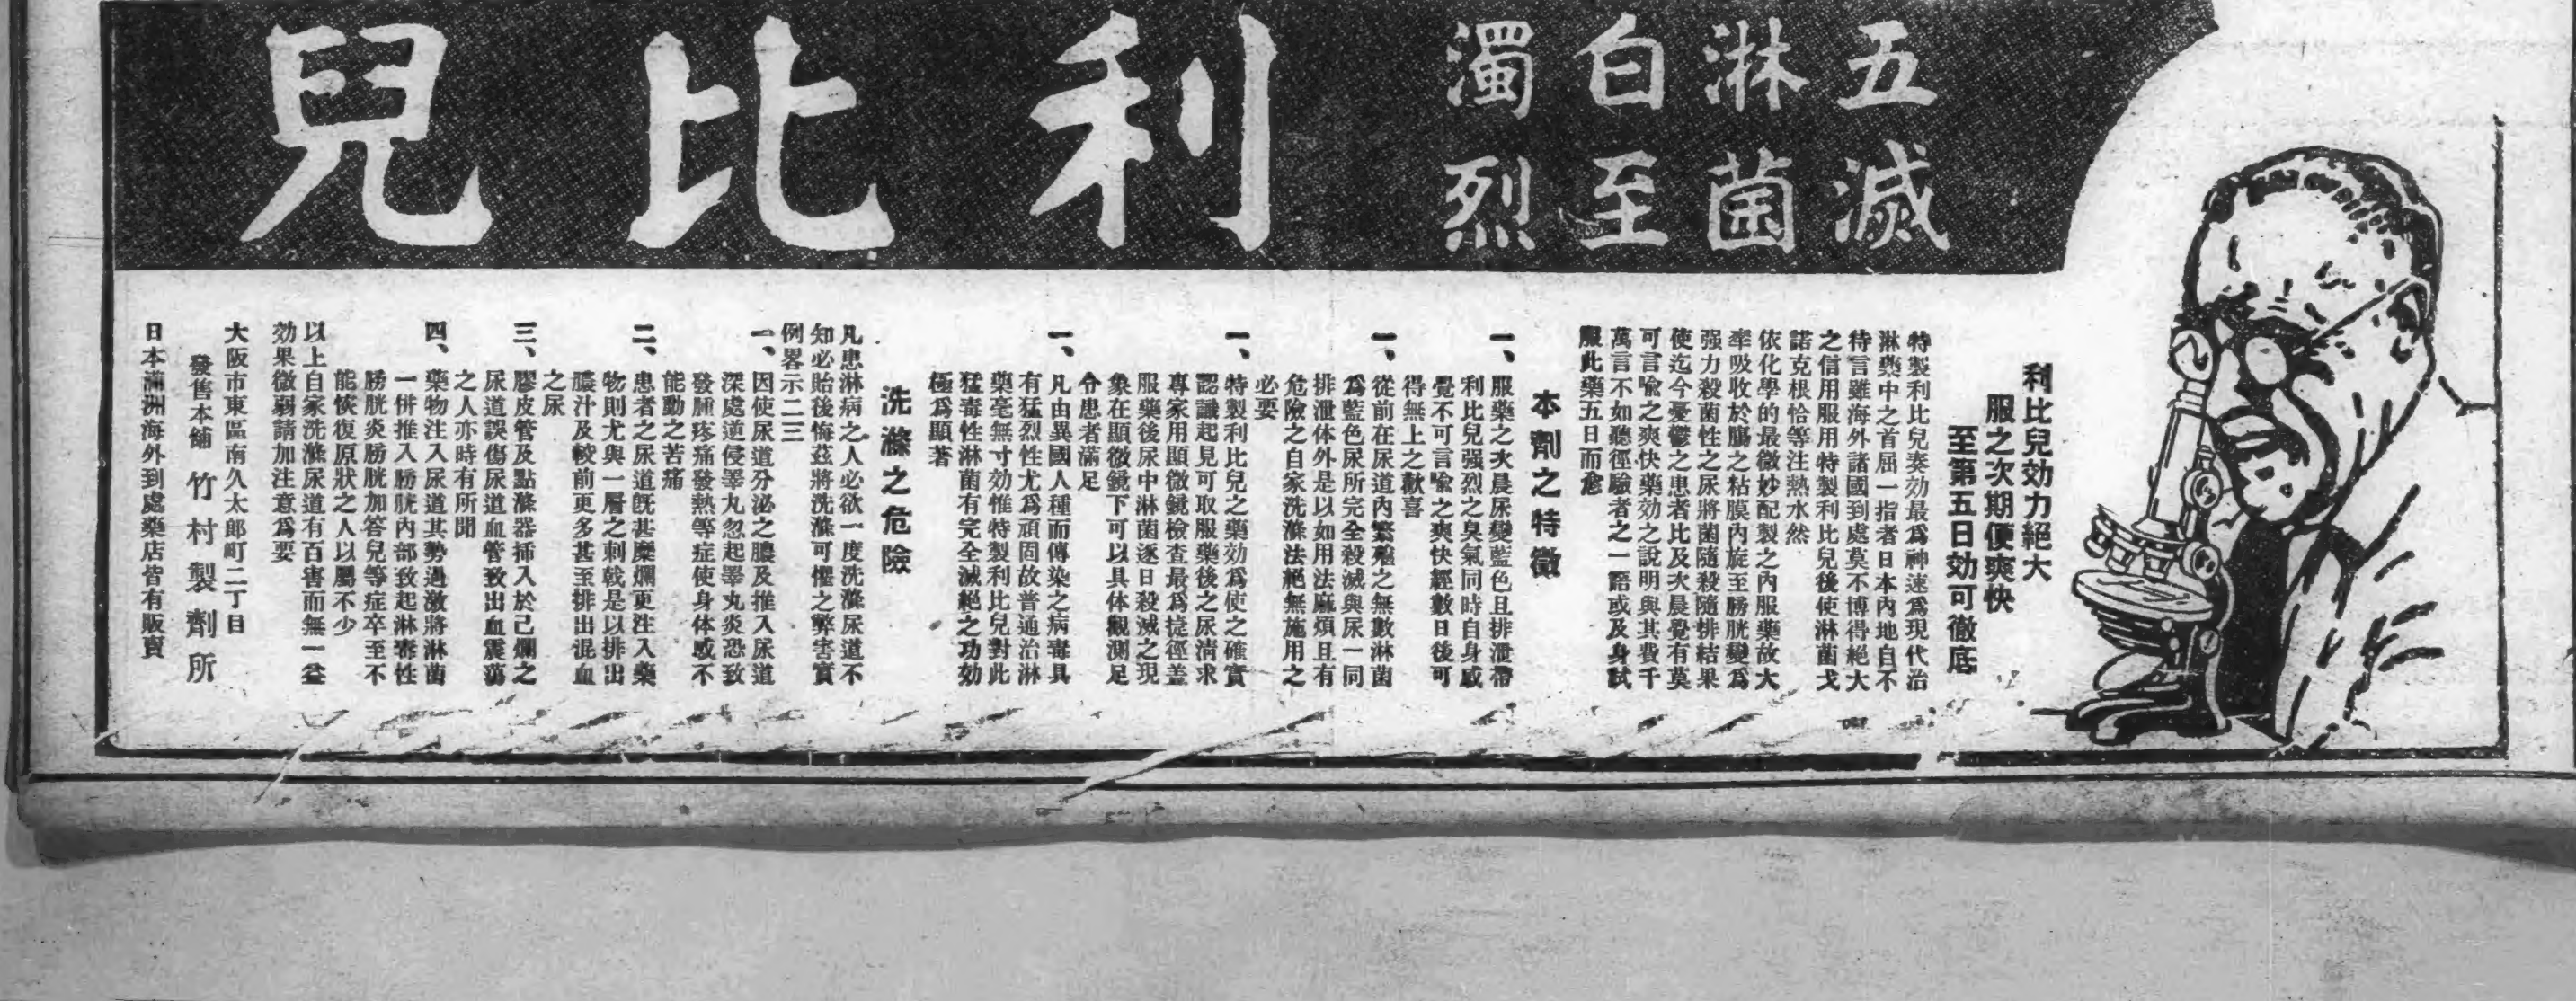 五淋白濁
滅菌至烈
利比兒
利比兒効力絕大
服之次期便爽快
至第五日効可徹底
特製利比兒奏効最爲神速爲現代治
淋藥中之首屈一指者日本內地自不
待言雖海外諸國到處莫不博得絕大
之信用服用特製利比兒後使淋菌戈
諾克根恰等注熱水然
依化學的最微妙配製之內服藥故大
率吸收於腸之粘膜內旋至膀胱變爲
强力殺菌性之尿將菌隨殺隨排結果
使迄今憂鬱之患者比及次晨覺有莫
可言喩之爽快藥効之說明與其費千
萬言不如聽徑驗者之一語或及身試
服此藥五日而愈
本劑之特徵
一、服藥之次晨尿變藍色且排泄帶
利比兒强烈之臭氣同時自身感
覺不可言喩之爽快經數日後可
得無上之歡喜
一、從前在尿道內繁殖之無數淋菌
爲藍色尿所完全殺滅與尿一同
排泄体外是以如用法麻煩且有
危險之自家洗滌法絕無施用之
必要
一、特製利比兒之藥効爲使之確實
認識起見可取服藥後之尿淸求
專家用顯微鏡檢查最爲捷徑蓋
服藥後尿中淋菌逐日殺滅之現
象在顯微鏡下可以具体觀測足
令患者滿足
一、凡由異國人種而傳染之病毒具
有猛烈性尤爲頑固故普通治淋
藥毫無寸効惟特製利比兒對此
猛毒性淋菌有完全滅絕之功効
極爲顯著
洗滌之危險
凡患淋病之人必欲一度洗滌尿道不
知必貽後悔茲將洗滌可懼之弊害實
例畧示二三
一、因使尿道分泌之膿及推入尿道
深處逆侵睪丸忽起睪丸炎恐致
發腫疼痛發熱等症使身体感不
能動之苦痛
二、患者之尿道旣甚糜爛更注入藥
物則尤與一層之刺戟是以排出
膿汁及較前更多甚至排出混血
之尿
三、膠皮管及點滌器揷入於已爛之
尿道誤傷尿道血管致出血震蕩
之人亦時有所聞
四、藥物注入尿道其勢過激將淋菌
一併推入膀胱內部致起淋毒性
膀胱炎膀胱加答兒等症卒至不
能恢復原狀之人以屬不少
以上自家洗滌尿道有百害而無一益
効果微弱請加注意爲要
大阪市東區南久太郎町二丁目
發售本舖 竹村製劑所
日本滿洲海外到處藥店皆有販賣